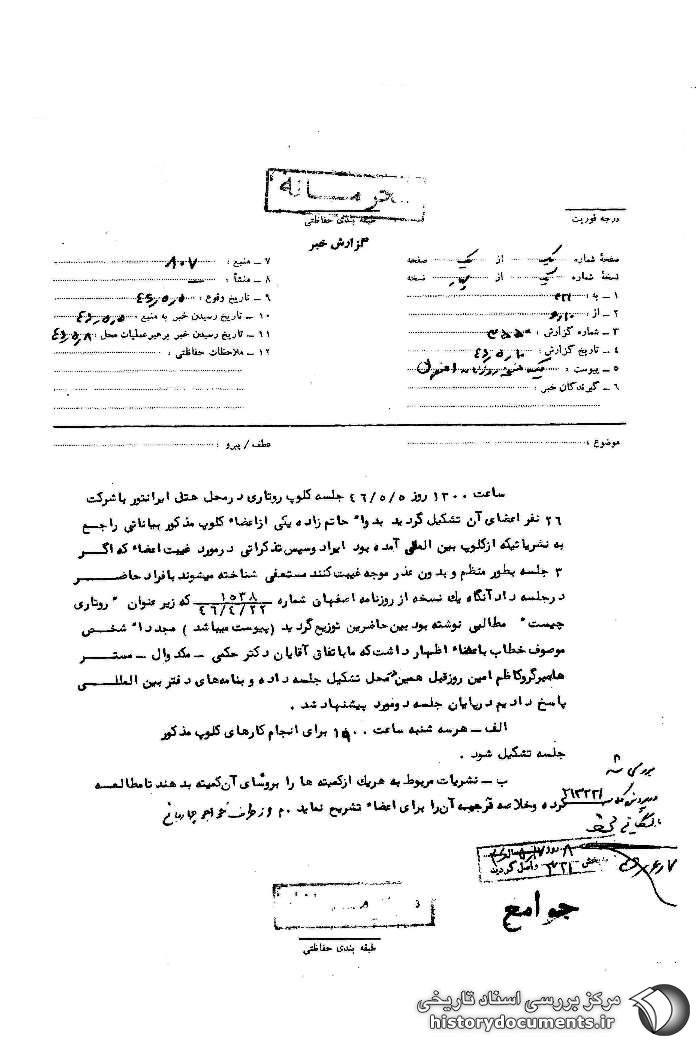 محرمانه
طبقه بندی حفاظتی
درجه فوریت
گزارش خبر
صفحهٔ شماره یک از یک صفحه
نسخهٔ شماره یک از نسخه
۱ ـ به : ۳۲۱
۲ ـ از :
۳ ـ شماره گزارش :
۴ ـ تاریخ گزارش :
۵ ـ پیوست :
۶ ـ گیرندگان خبر :
۷ ـ منبع : ۸۰۷
۸ ـ منشأ :
۹ ـ تاریخ وقوع : ۴۶٫۵٫۵
۱۰ ـ تاریخ رسیدن خبر به منبع : ۴۶٫۵٫۵
۱۱ ـ تاریخ رسیدن خبر برهبرعملیات محل : ۴۶٫۵٫۸
۱۲ ـ ملاحظات حفاظتی :
موضوع :
عطف / پیرو :
ساعت ۱۳۰۰ روز ۴۶/۵/۵ جلسه کلوپ روتاری درمحل هتل ایرانتور باشرکت
۲۶ نفر اعضای آن تشکیل گردید بدواً حاتم زاده یکی ازاعضاء کلوپ مذکور بیاناتی راجع
به نشریاتیکه ازکلوپ بین المللی آمده بود ایراد وسپس تذکراتی درمورد غیبت اعضاء که اگر
۳ جلسه بطور منظم و بدون عذر موجه غیبت کنند مستعفی شناخته میشوند بافراد حاضر
درجلسه داد آنگاه یک نسخه از روزنامه اصفهان شماره ۱۵۳۸ ۴۶/۴/۲۲ که زیر عنوان " روتاری
چیست " مطالبی نوشته بود بین حاضرین توزیع گردید (پیوست میباشد ) مجدداً شخص
موصوف خطاب باعضاء اظهار داشت که ما باتفاق آقایان دکتر حکمی ـ مکدوال ـ مستر
هامبرگروکاظم امین روزقبل همین محل تشکیل جلسه داده و بنامه‌های دفتر بین المللی
پاسخ دادیم درپایان جلسه دومورد پیشنهاد شد .
الف ـ هرسه شنبه ساعت برای انجام کارهای کلوپ مذکور
جلسه تشکیل شود .
ب ـ نشریات مربوط به هریک ازکمیته ها را بروسای آن کمیته بدهند تامطالعه
کرده وخلاصه ترجمه آن را برای اعضاء تشریح نماید .
۳۲۱
واصل گردید
جوامع
طبقه بندی حفاظتی
مرکز بررسی اسناد تاریخی
historydocuments.ir